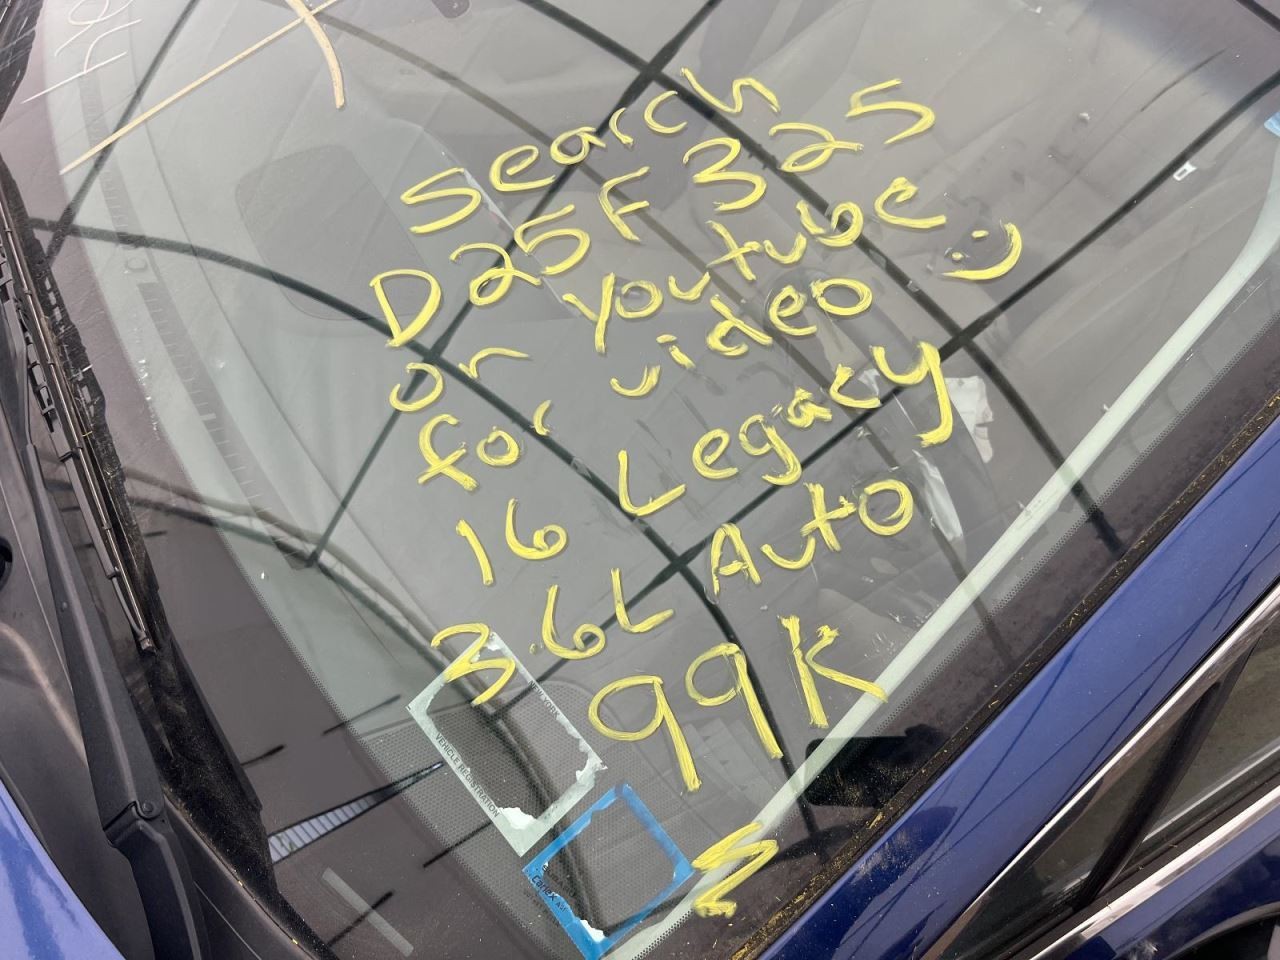 Search
D25F325
on Youtube
for video :)
16 Legacy
3.6L Auto
99K
NEW YORK
VEHICLE REGISTRATION